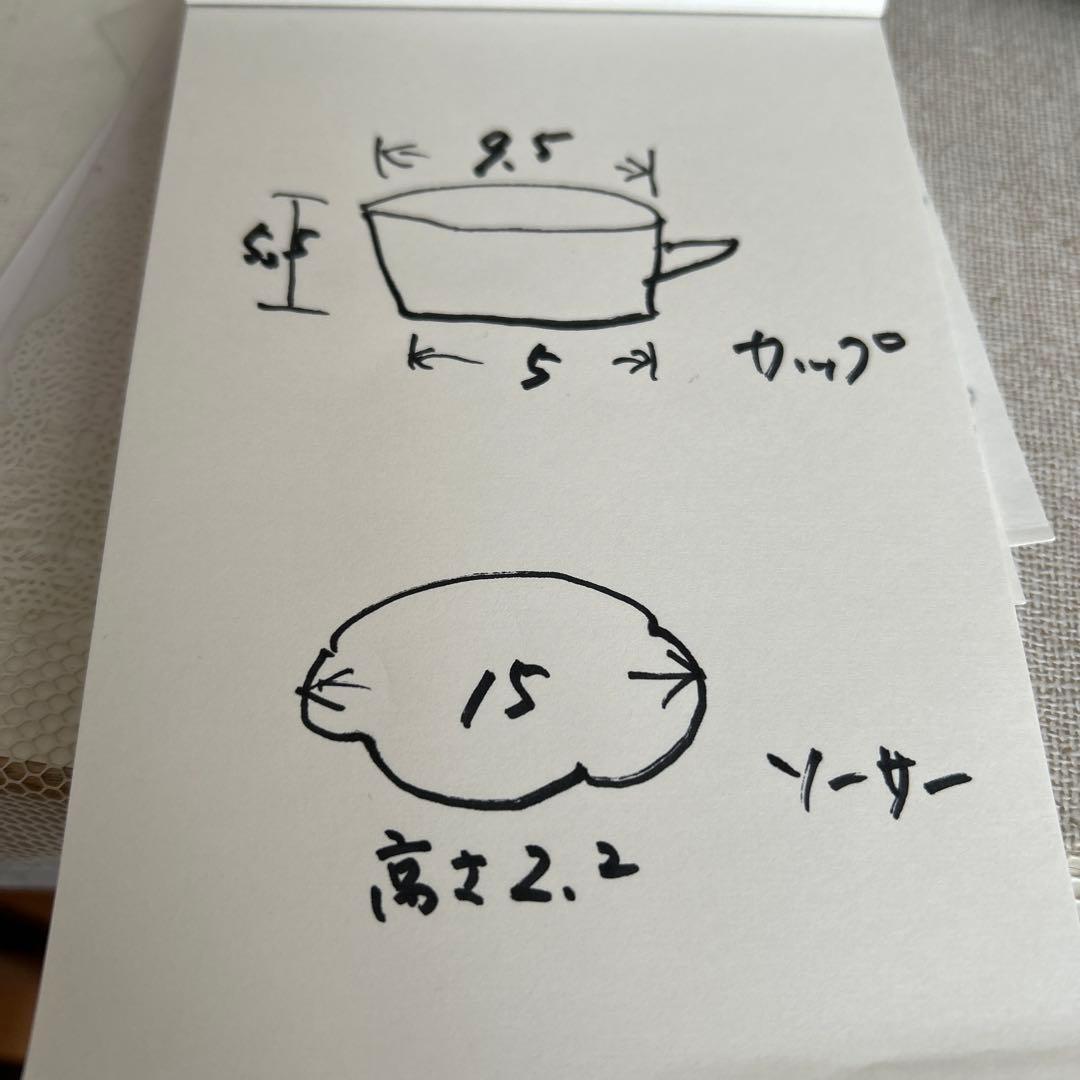 9.5
5.5
5
カップ
15
ソーサー
高さ2.2